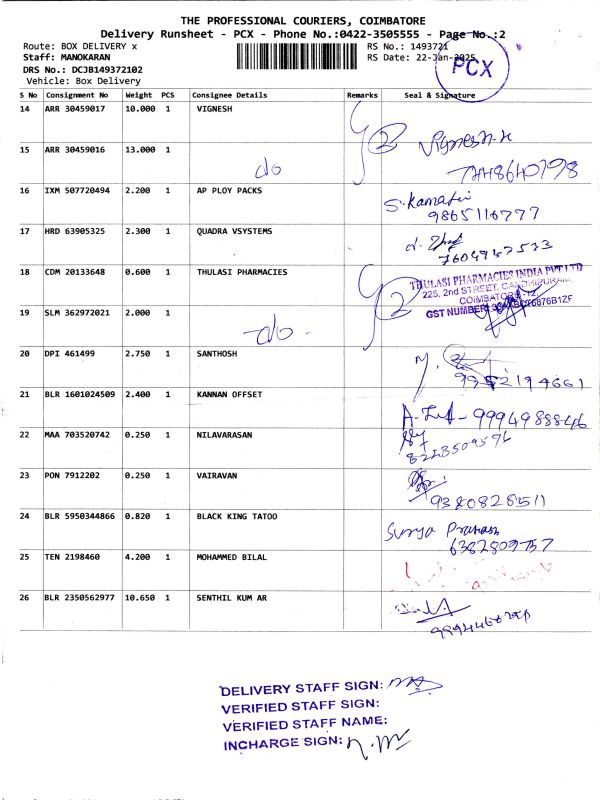 THE PROFESSIONAL COURIERS, COIMBATORE
Delivery Runsheet - PCX - Phone No.:0422-3505555 - Page No.:2
Route: BOX DELIVERY x RS No.: 1493721
Staff: MANOKARAN RS Date: 22-Jan-2025
DRS No.: DCJB149372102
Vehicle: Box Delivery
PCX
S No Consignment No Weight PCS Consignee Details Remarks Seal & Signature
14 ARR 30459017 10.000 1 VIGNESH
2 Vignesh.k
15 ARR 30459016 13.000 1 do
16 IXM 507720494 2.200 1 AP PLOY PACKS S. Kamatri
9865116777
17 HRD 63905325 2.300 1 QUADRA VSYSTEMS
7604947533
18 CDM 20133648 0.600 1 THULASI PHARMACIES
2 THULASI PHARMACIES INDIA PVT LTD
225, 2nd STREET, GANDHIPURAM,
COIMBATORE-12.
GST NUMBER:
19 SLM 362972021 2.000 1 -do-
20 DPI 461499 2.750 1 SANTHOSH
9952194661
21 BLR 1601024509 2.400 1 KANNAN OFFSET
9994988846
22 MAA 703520742 0.250 1 NILAVARASAN
8248509576
23 PON 7912202 0.250 1 VAIRAVAN
9380826511
24 BLR 5950344866 0.820 1 BLACK KING TATOO Surya Prakash
6382809757
25 TEN 2198460 4.200 1 MOHAMMED BILAL
26 BLR 2350562977 10.650 1 SENTHIL KUM AR
DELIVERY STAFF SIGN:
VERIFIED STAFF SIGN:
VERIFIED STAFF NAME:
INCHARGE SIGN: